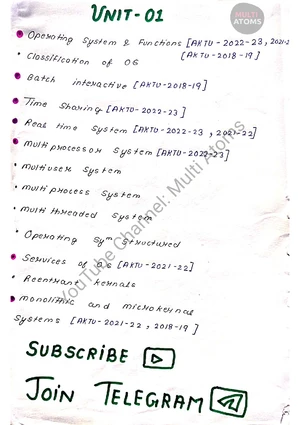 UNIT-01
MULTI
ATOMS
Operating System & Functions [AKTU-2022-23, 2021-2
[AKTU-2018-19]
Classification of OS
Batch interactive [AKTU-2018-19]
Time Sharing [AKTU-2022-23]
Real time System [AKTU-2022-23, 2021-22]
Multiprocessor System [AKTU-2022-23]
Multiuser System
Multiprocess System
Multithreaded System
Operating Sym Structured
Services of OS [AKTU-2021-22]
Reentrant kernals
Monolithic and microkernal
Systems [AKTU-2021-22, 2018-19]
YouTube Channel: Multi Atoms
SUBSCRIBE
JOIN TELEGRAM